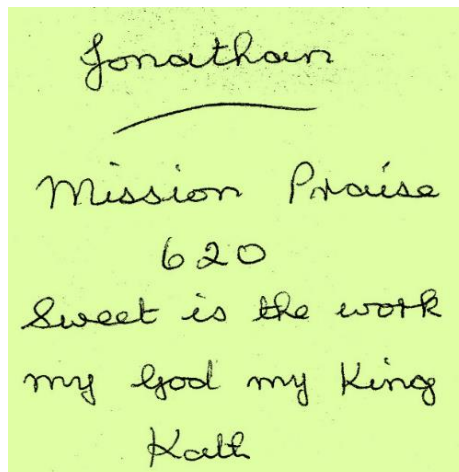 Jonathan
Mission Praise
620
Sweet is the work
my God my King
Kath